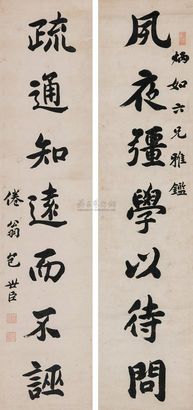 炳如六兄雅鑑
夙夜彊學以待問
疏通知遠而不誣
倦翁包世臣